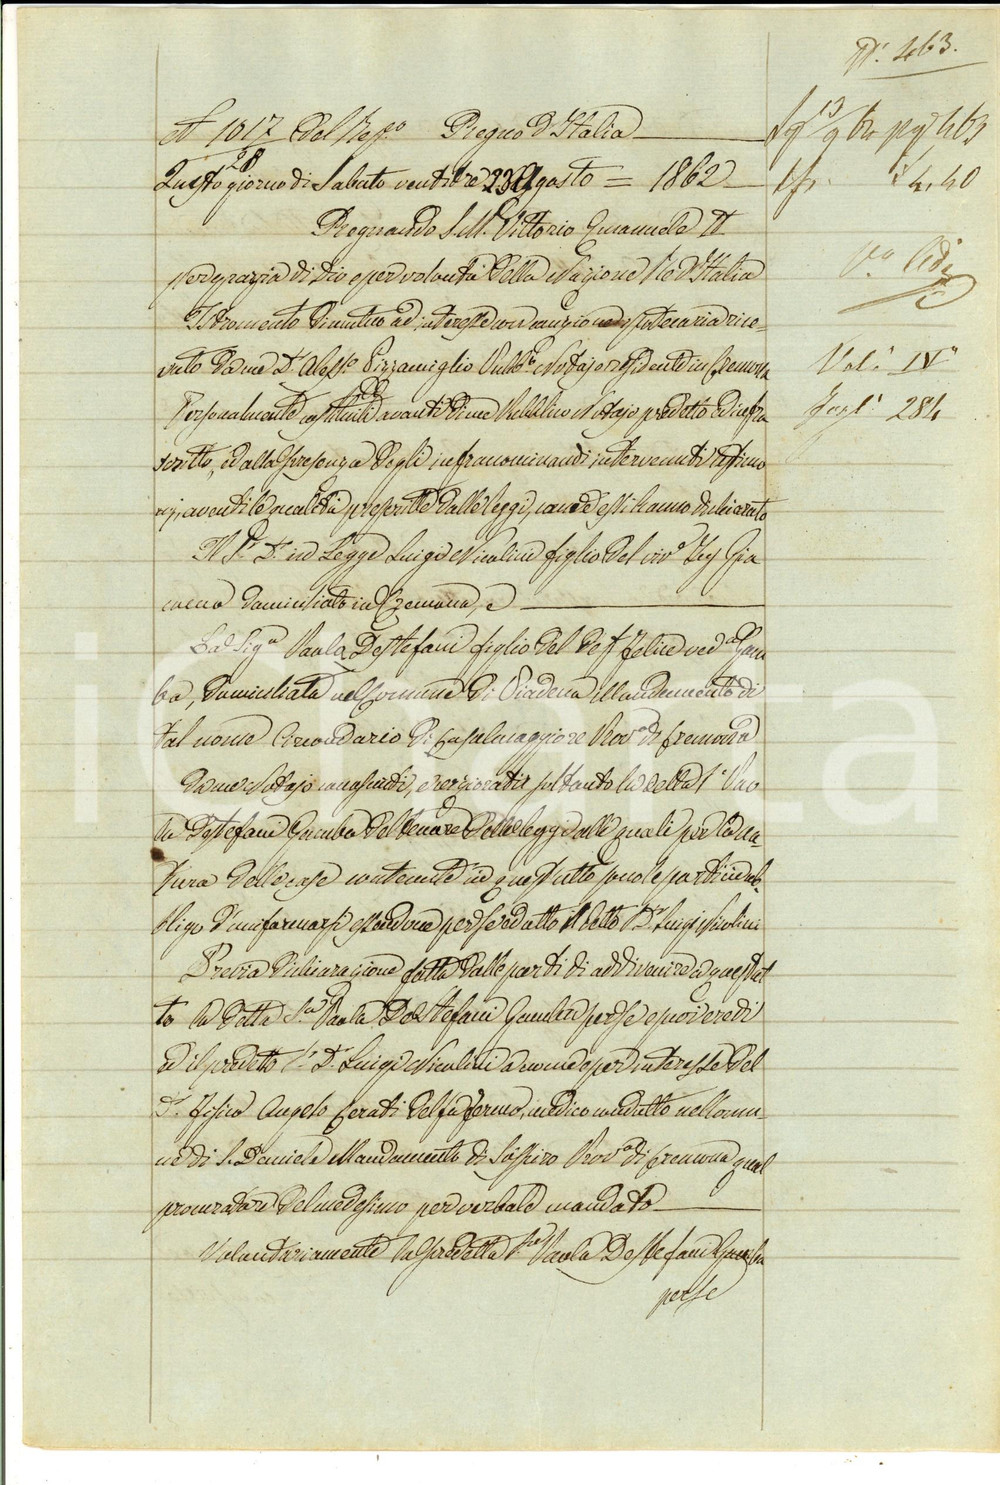 N. 463.
N 1017 del Rep.o Regno d'Italia
Questo giorno di Sabato ventitre 23 Agosto = 1862
4,40
Regnando S. M. Vittorio Emanuele II
per grazia di Dio e per volontà della Nazione Re d'Italia
Istromento di mutuo ad interesse con cauzione ipotecaria rice-
vuto da me Dr. Aless.o Pizzamiglio Pubb.o Notajo residente in Cremona
Vol.e IV
Personalmente costituiti avanti di me Pubblico Notajo predetto ed infra
Fogl.o 284
scritto, ed alla presenza degli infranominandi intervenuti testimo
nj, aventi le qualità prescritte dalle leggi, come essi hanno dichiarato
Il Sr. Dr. in Legge Luigi Nicolini figlio del viv.e Gia
como domiciliato in Cremona, e
La Sig.a Paola Destefani figlia del def. Felice ved.a Gam
ba, domiciliata nel Comune di Viadana Mandamento di
tal nome Circondario di Casalmaggiore Prov.a di Cremona
Da me Notajo conosciuti, e cerziorati soltanto la detta S.a Pao
la Destefani Gamba del tenore delle leggi alle quali per la na-
tura delle cose contenute in quest'atto sono le parti in ob-
bligo d'uniformarsi essendone per sé edotto il detto Sr. Dr. Luigi Nicolini
Previa dichiarazione fatta dalle parti di addivenire a quest'at
to la detta S.a Paola Destefani Gamba per se e suoi eredi
ed il predetto Sr. Dr. Luigi Nicolini a nome e per interesse del
Dr. fisico Angelo Cerati del fu Fermo, medico condotto nel Comu
ne di S. Daniele Mandamento di Sospiro Prov.a di Cremona qual
procuratore del medesimo per verbale mandato
Volontariamente la predetta S.a Paola Destefani Gamba
per se